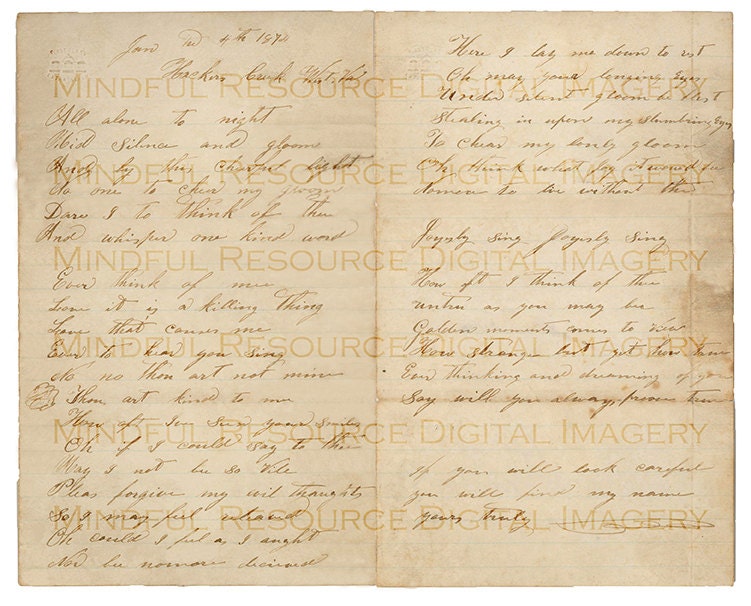 Jan 4th 1872
Hackers Creek West Va
MINDFUL RESOURCE DIGITAL IMAGERY
All alone to night
Mid Silence and gloom
And by this cherful light
MINDFUL RESOURCE DIGITAL IMAGERY
No one to cher my groom
Dare I to think of thee
And whisper one kind word
MINDFUL RESOURCE DIGITAL IMAGERY
Ever think of mee
Love it is a killing thing
Love that causes me
Ever to hear you Sing
MINDFUL RESOURCE DIGITAL IMAGERY
No no thou art not mine
Thou art kind to me
How oft Iv seen your Smiles
MINDFUL RESOURCE DIGITAL IMAGERY
Oh if I could Say to thee
May I not be so Vile
Pleas forgive my wil thoughts
So I may feel relieved
MINDFUL RESOURCE DIGITAL IMAGERY
Oh could I feel as I aught
Nor be nomore decieved
Here I lay me down to rest
Oh may your longing Eyes
Under Silent gloom be blest
Stealing in upon my Slumbring Eyes
To Chear my lonly gloom
Oh think what joy it would be
Nomore to live without the
Joyusly Sing Joyusly Sing
How oft I think of thee
untru as you may be
Golden moments comes to view
How strange but yet how true
Ever thinking and dreaming of you
Say will you always proove true
if you will look careful
you will find my name
yours truly